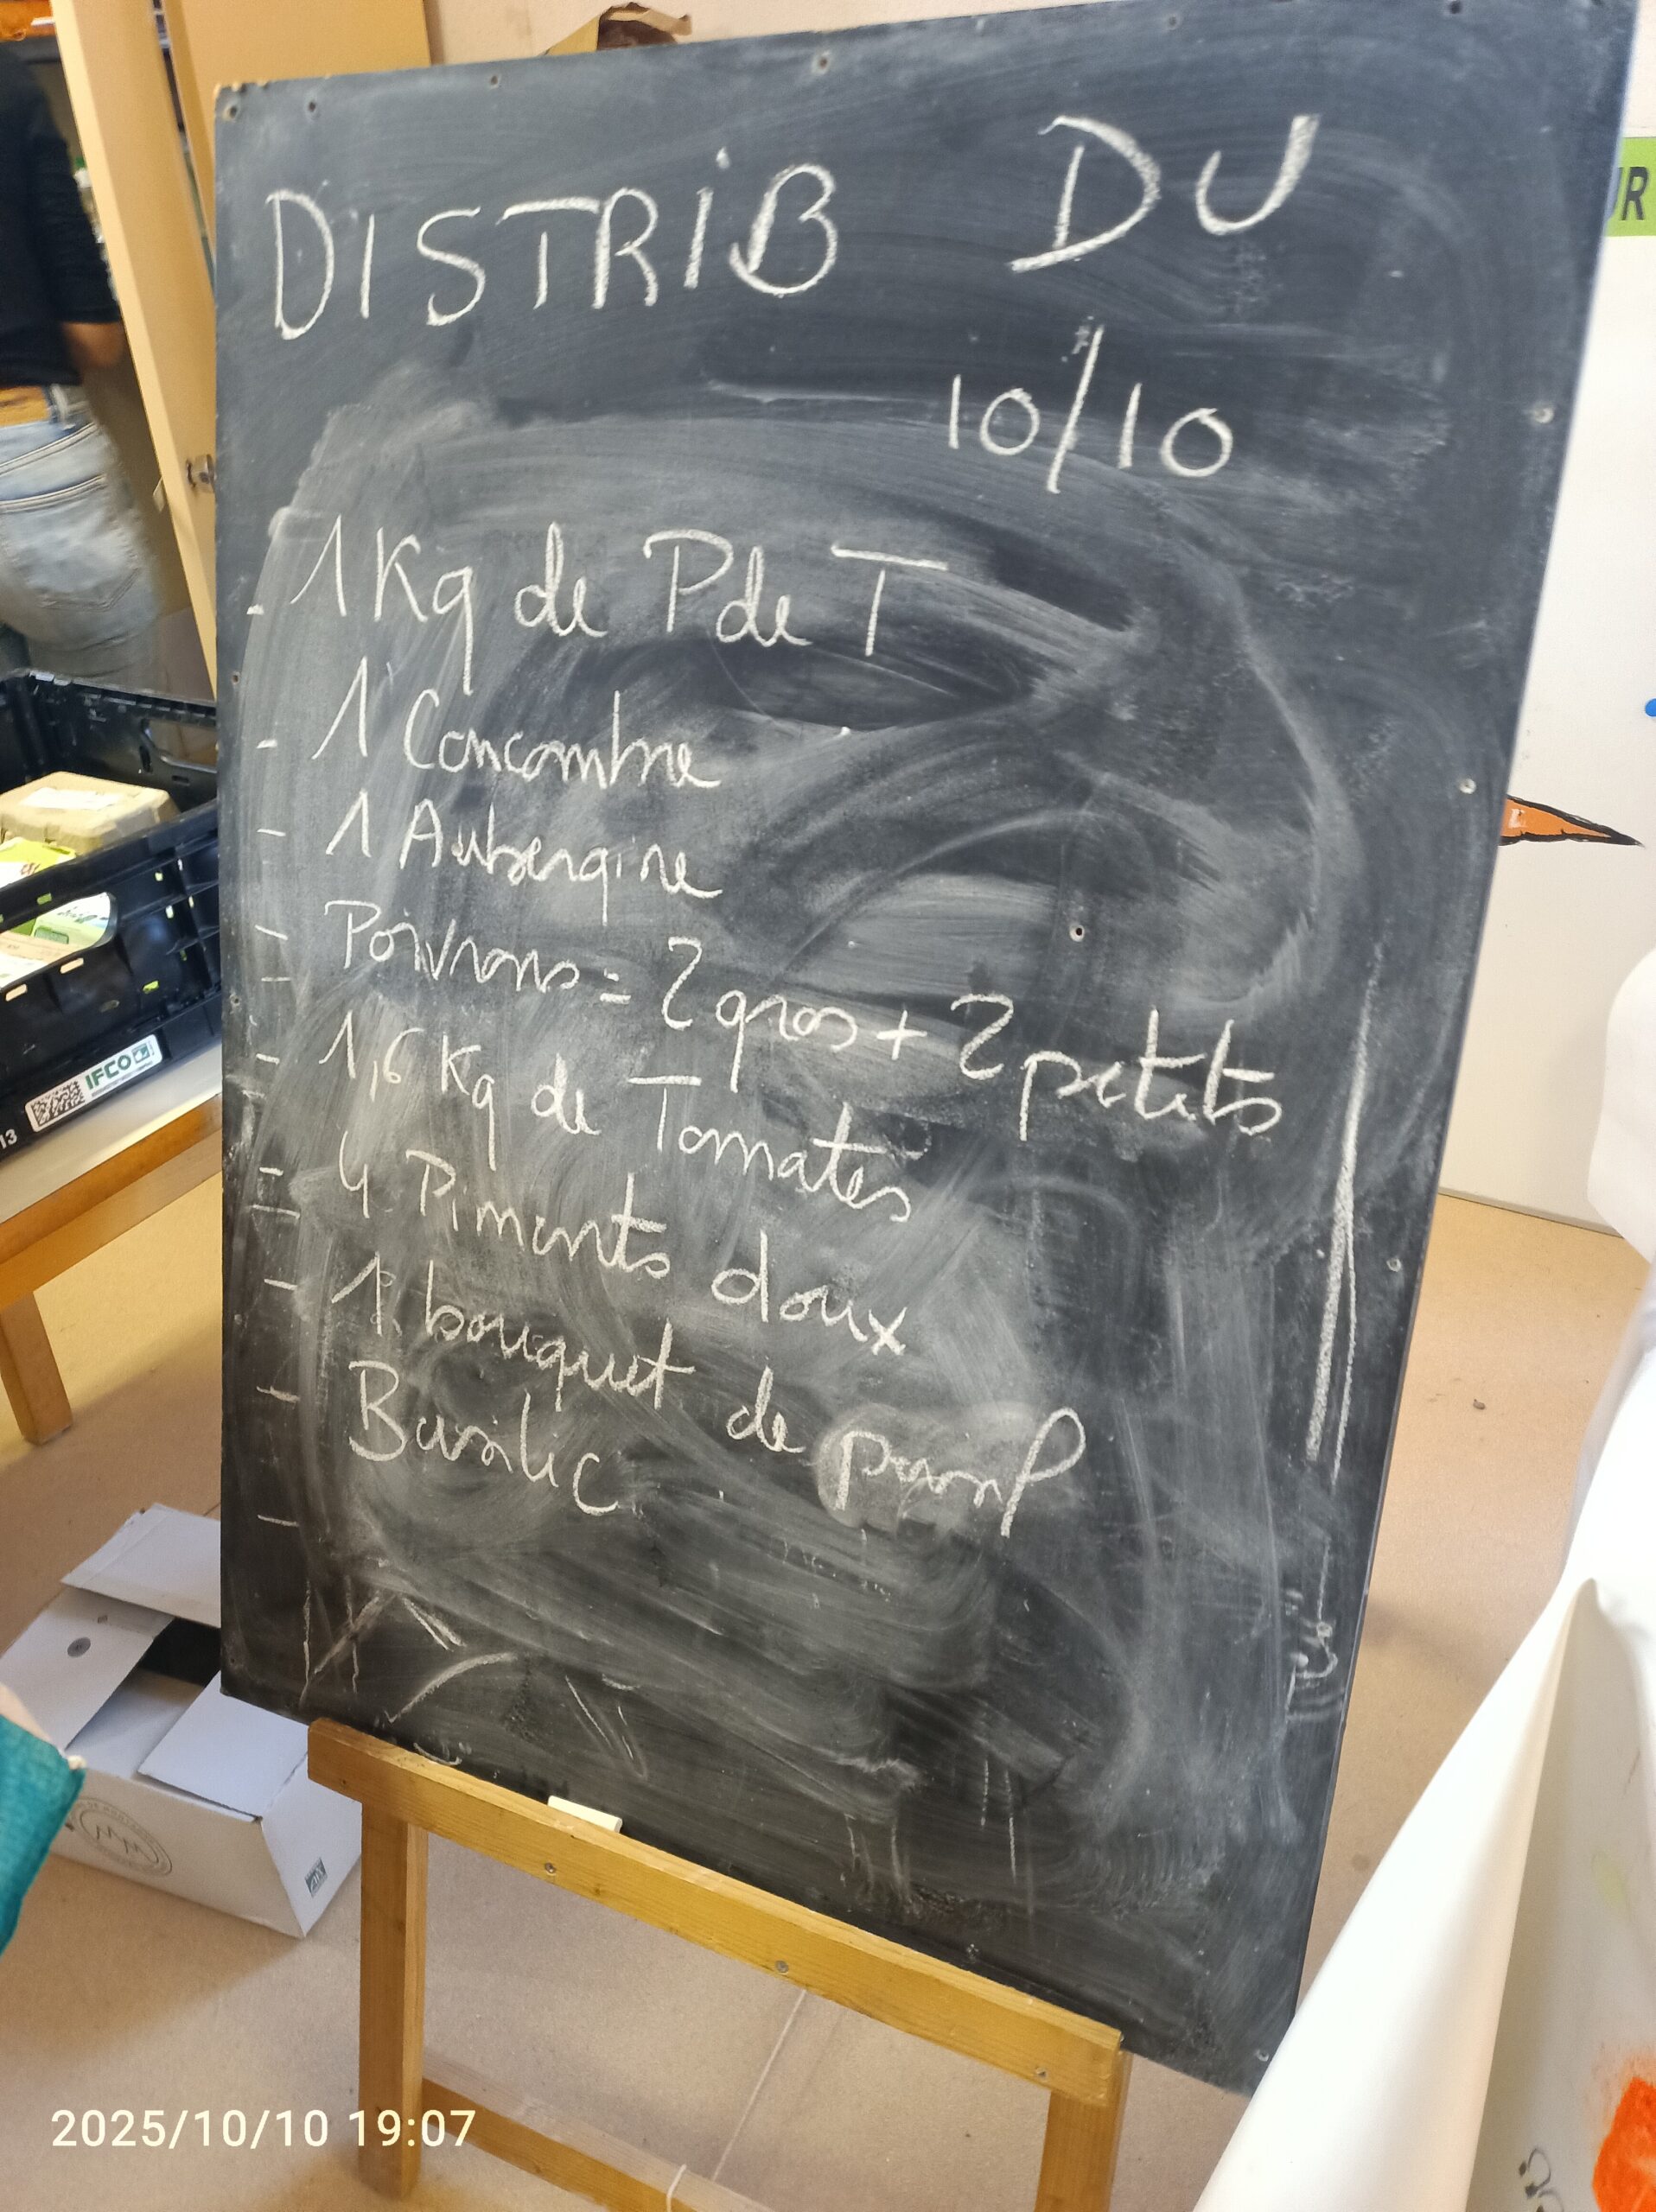 DISTRIB DU
10/10
- 1 Kg de P de T
- 1 Concombre
- 1 Aubergine
- Poivrons = 2 gros + 2 petits
- 1,6 Kg de Tomates
- 4 Piments doux
- 1 bouquet de
- Basilic
IFCO
13
UR
2025/10/10 19:07